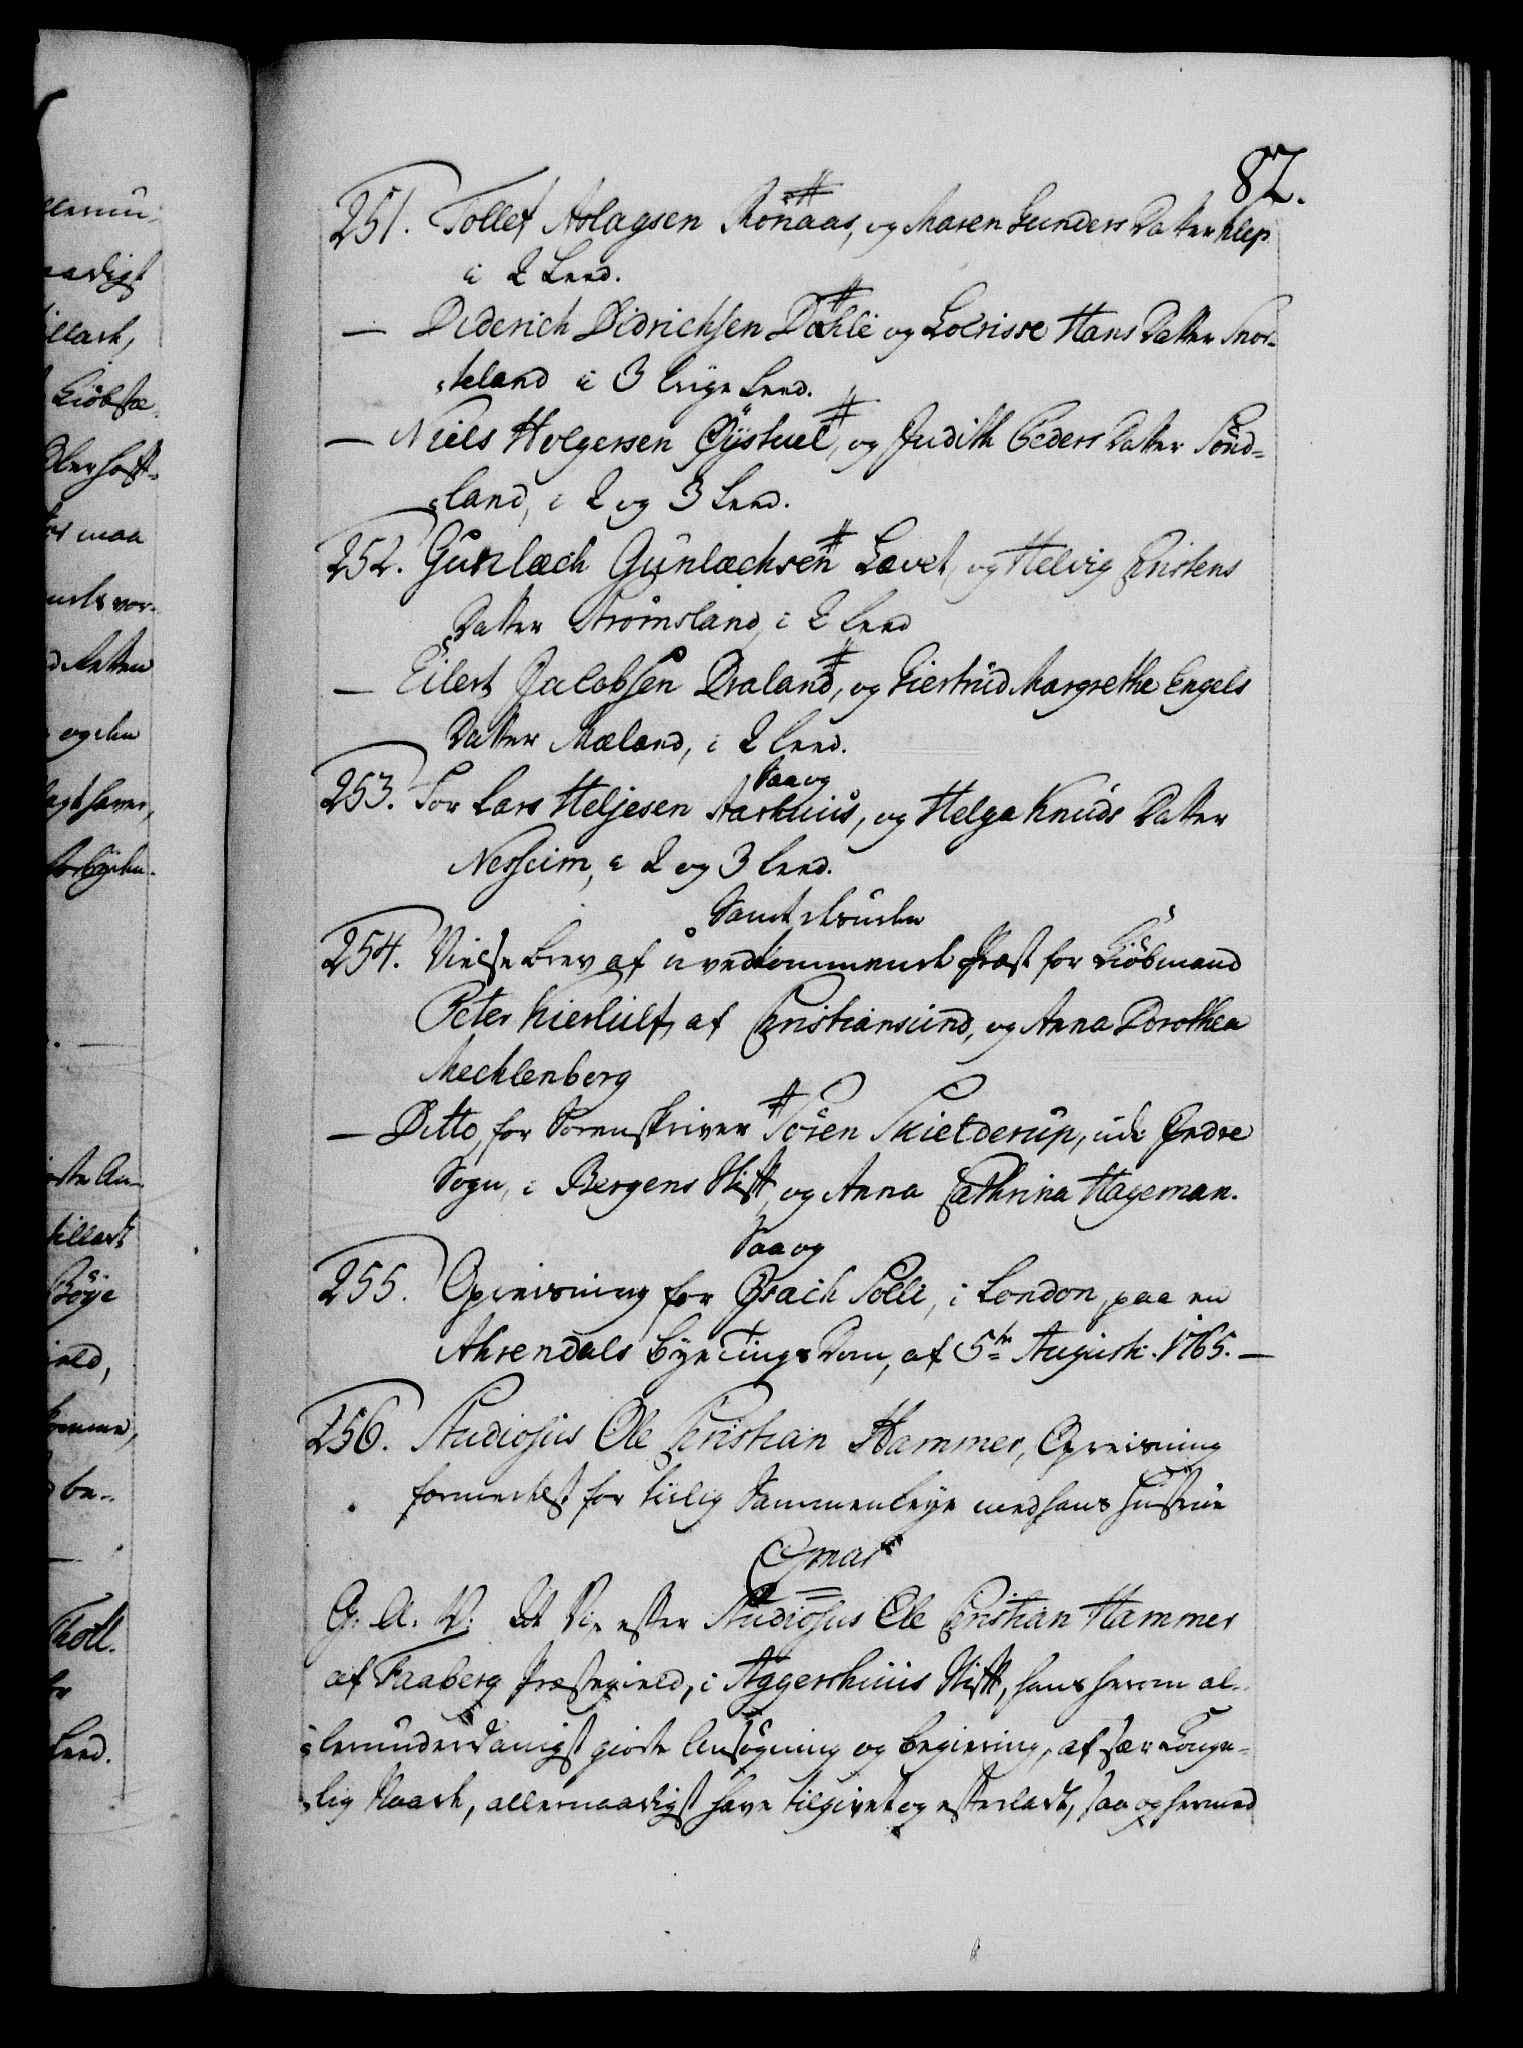 87.
251. Tollef Aslagsen Rønaas, og Maren Gunders Datter Klep
i 2 Leed.
— Diderich Didrichsen Døhle og Lovrisse Hans Datter Snor-
-keland i 3 lige Leed.
— Niels Holgersen Øÿstuel, og Judith Peders Datter Sönd-
-land, i 2 og 3 Leed.
252. Gunlæch Gunlæchsen Lævet, og Helvig Christens
Datter Strömsland, i 2 Leed
— Eilert Jacobsen Draland, og Giertrud Margrethe Engels
Datter Mæland, i 2 Leed.
Saa og
253. For Lars Heljesen Aarhuus, og Helga Knuds Datter
Nesheim, i 2 og 3 Leed.
Samt desuden
254. Vielse brev af uvedkommende Præst for Kiöbmand
Peter Kierulf, af Christiansund, og Anna Dorothea
Mechlenberg
— Ditto, for Sorenskriver Sören Skielderup, udi Jndre
Sogn, i Bergens Stift, og Anna Cathrina Hageman.
Saa og
255. Opreisning for Jsach Solli, i London, paa en
Ahrendals bye Tings Dom, af 5te Augusti. 1765. —
256. Studiosus Ole Christian Hammer, Opreisning
formedelst for tiilig Sammenleye med hans Hustrue
G: A: V: At Vi, efter Studiosus Ole Christian Hammer
af Faaberg Præstegield, i Aggershuus Stift, hans herom al-
-lerunderdanigst giorte Ansögning og begiering, af sær Konge-
-lig Naade, allernaadigst have tilgivet og efterladt, saa og hermed